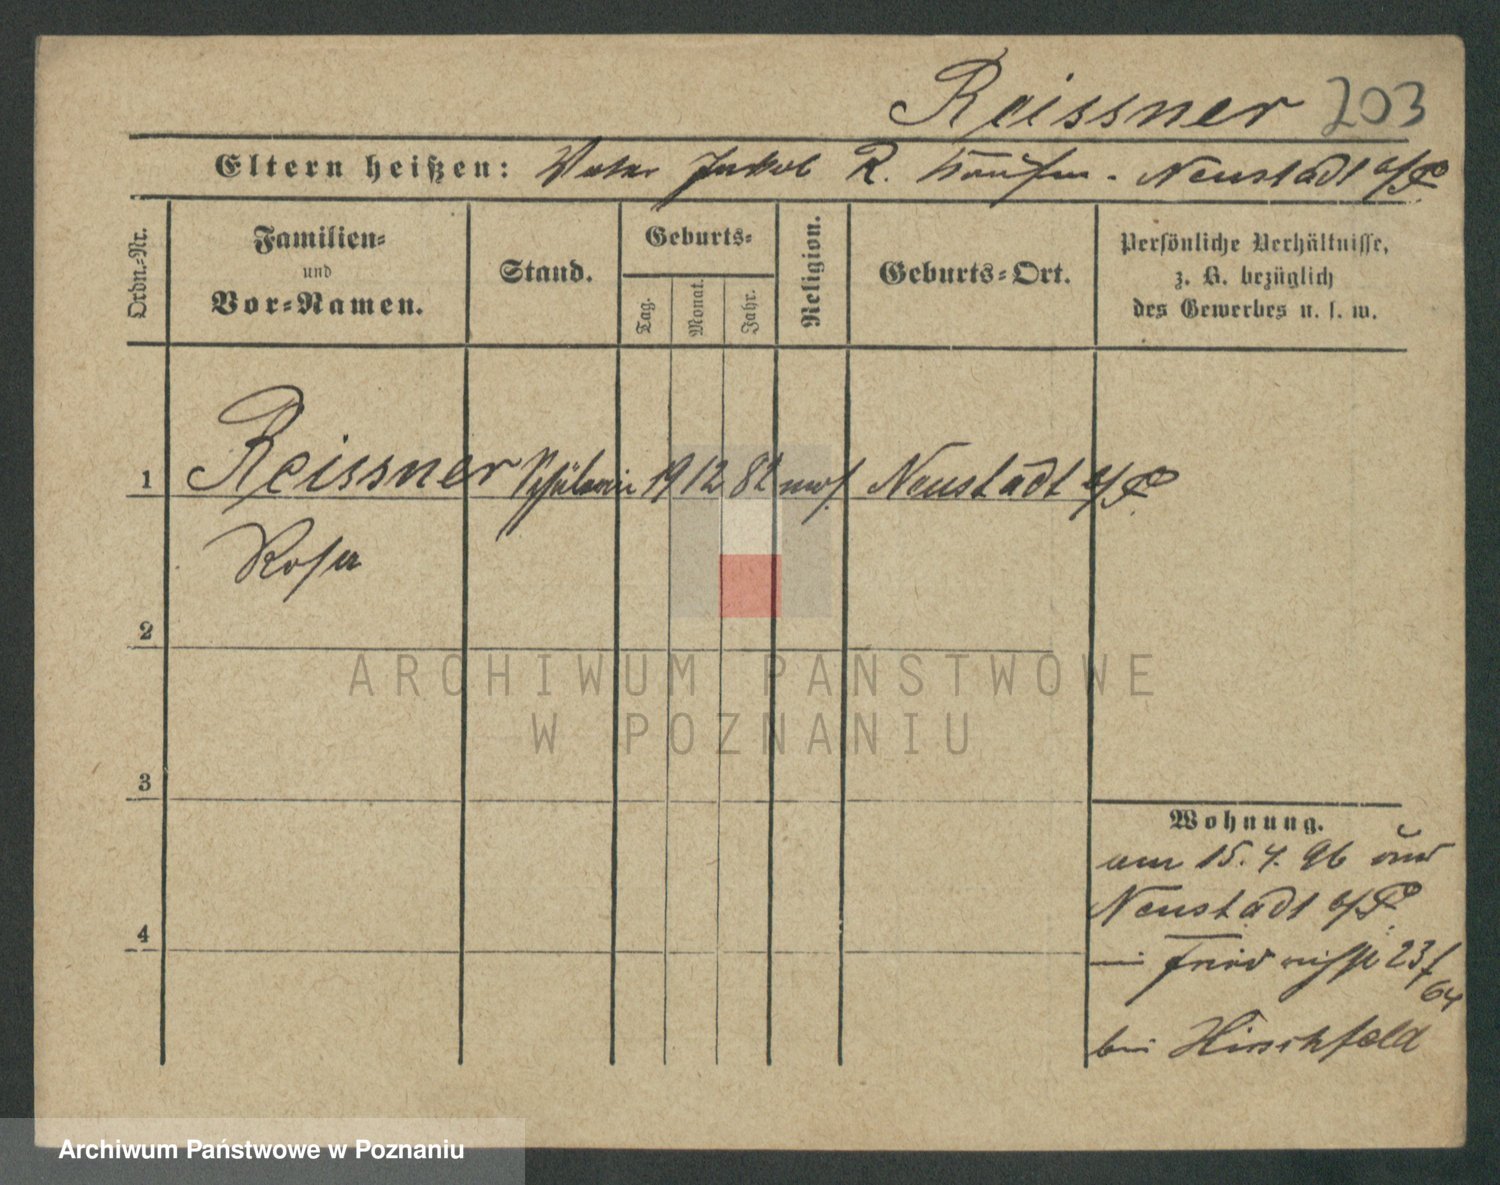 Reissner 203
Eltern heißen: Vater Jakob R. Kaufm. Neustadt a/P
Ordn.-Nr.
Familien-
und
Vor-Namen.
Stand.
Geburts-
Tag.
Monat.
Jahr.
Religion.
Geburts-Ort.
Persönliche Verhältnisse,
z. B. bezüglich
des Gewerbes u. s. w.
1 Reissner Schülerin 19 12 82 mos. Neustadt a/P
Rosa
2
3
4
Wohnung.
am 15. 4. 96 aus
Neustadt a/P.
23/
64
bei Hirschfeld
ARCHIWUM PAŃSTWOWE
W POZNANIU
Archiwum Państwowe w Poznaniu